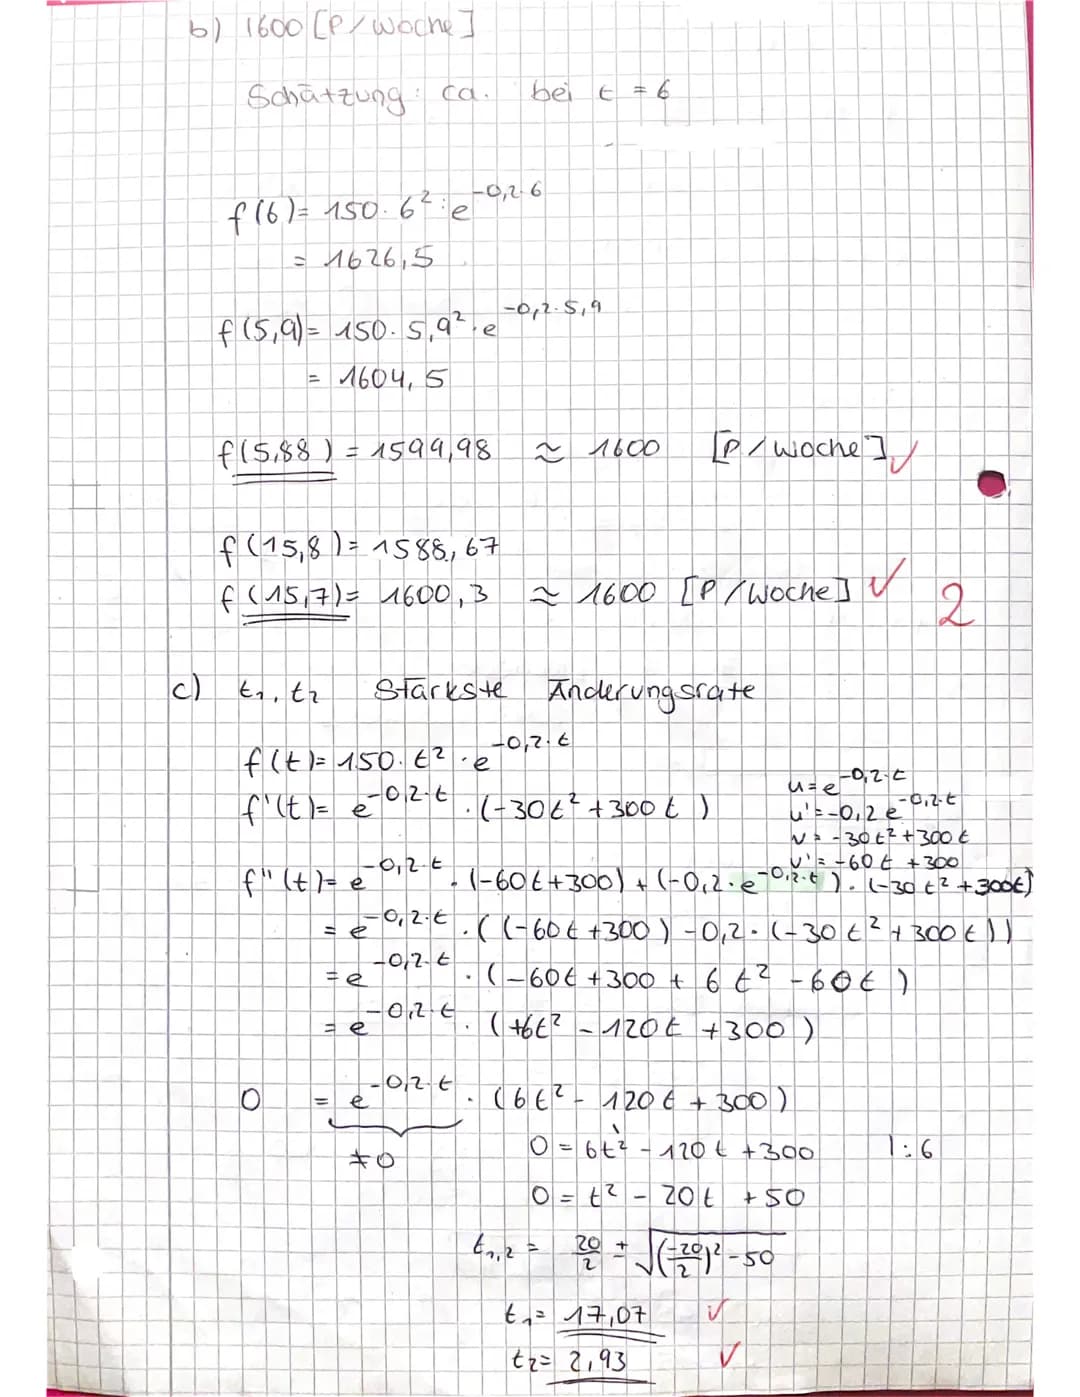 b) 1600 [P/Woche]
Schätzung: ca. bei t = 6
f(6)= 150 · 6² · e^-0,2·6
= 1626,5
f(5,9)= 150 · 5,9² · e^-0,2·5,9
= 1604,5
f(5,88) = 1599,98 ≈ 1600 [P/Woche] ✓
f(15,8)= 1588,67
f(15,7)= 1600,3 ≈ 1600 [P/Woche] ✓ 2
c) t₁, t₂ Stärkste Änderungsrate
f(t)= 150 · t² · e^-0,2·t
f'(t)= e^-0,2·t · (-30t² + 300t)
u = e^-0,2·t
u' = -0,2 e^-0,2·t
v = -30t² + 300t
v' = -60t + 300
f''(t)= e^-0,2·t · (-60t+300) + (-0,2 · e^-0,2·t) · (-30t² + 300t)
= e^-0,2·t · ((-60t+300) - 0,2 · (-30t² + 300t))
= e^-0,2·t · (-60t + 300 + 6t² - 60t)
= e^-0,2·t · (+6t² - 120t + 300)
0 = e^-0,2·t · (6t² - 120t + 300)
≠0
0 = 6t² - 120t + 300 |:6
0 = t² - 20t + 50
t₁,₂ = 20/2 ± √((-20/2)² - 50)
t₁= 17,07 ✓
t₂= 2,93 ✓